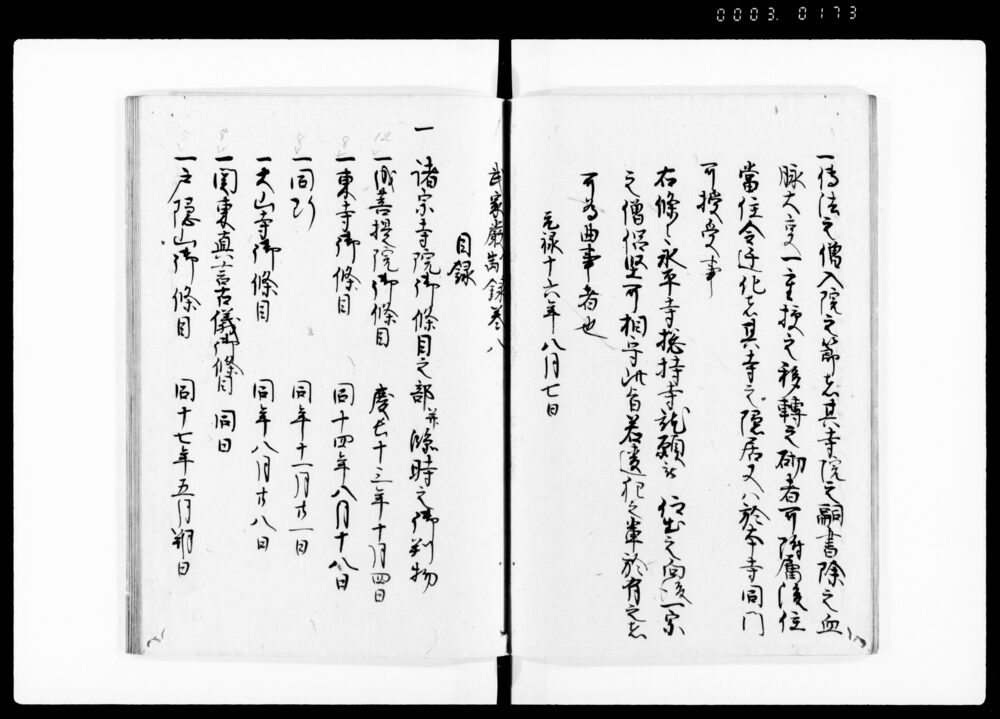 0003. 0173
一傳法之僧入院之節者其寺院之嗣書除之血
脉大事一重授之移轉之砌者可附属後住
當住令迁化者其寺之隠居又ハ於本寺同門
可授受事
右條々永平寺捴持寺就願被仰出之向後一宗
之僧侶堅可相守此旨若違犯之輩於有之者
可為曲事者也
元禄十六年八月七日
武家嚴制録巻八
目録
一 諸宗寺院御條目之部并臨時之御判物
一成菩提院御條目 慶長十三年十月四日
一東寺御條目 同十四年八月十八日
一同断 同年十一月廿一日
一大山寺御條目 同年八月廿八日
一関東真言古儀御條目 同日
一戸隠山御條目 同十七年五月朔日